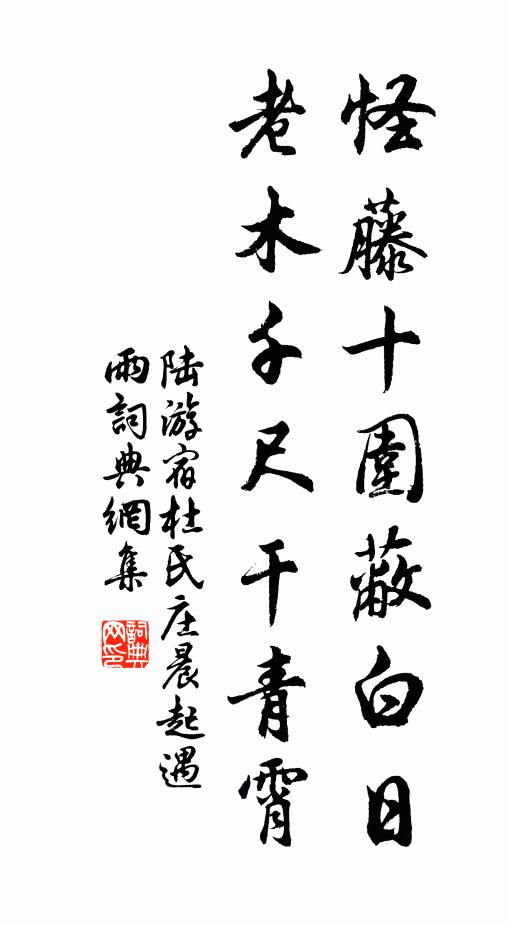 怪藤十圍蔽白日
老木千尺干青霄
陆游宿杜氏庄晨起遇
雨詞典網集
詞典網印